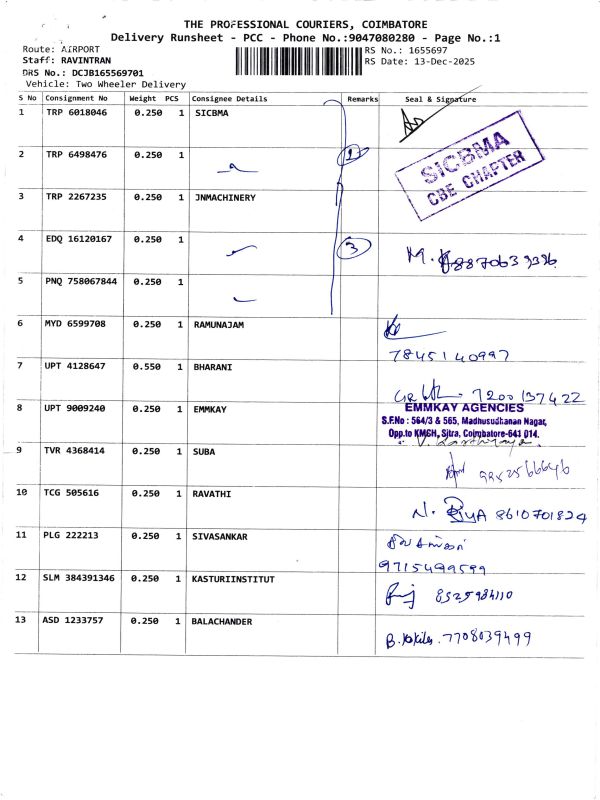 THE PROFESSIONAL COURIERS, COIMBATORE
Delivery Runsheet - PCC - Phone No.:9047080280 - Page No.:1
Route: AIRPORT
RS No.: 1655697
Staff: RAVINTRAN
RS Date: 13-Dec-2025
DRS No.: DCJB165569701
Vehicle: Two Wheeler Delivery
S No Consignment No Weight PCS Consignee Details Remarks Seal & Signature
1 TRP 6018046 0.250 1 SICBMA
SICBMA
CBE CHAPTER
2 TRP 6498476 0.250 1
3 TRP 2267235 0.250 1 JNMACHINERY
4 EDQ 16120167 0.250 1 3
5 PNQ 758067844 0.250 1
6 MYD 6599708 0.250 1 RAMUNAJAM
7845140997
7 UPT 4128647 0.550 1 BHARANI
7200137422
8 UPT 9009240 0.250 1 EMMKAY
EMMKAY AGENCIES
S.F.No : 564/3 & 565, Madhusudhanan Nagar,
Opp.to KMCH, Sitra, Coimbatore-641 014.
9 TVR 4368414 0.250 1 SUBA
10 TCG 505616 0.250 1 RAVATHI
8610701824
11 PLG 222213 0.250 1 SIVASANKAR
9715499599
12 SLM 384391346 0.250 1 KASTURIINSTITUT
13 ASD 1233757 0.250 1 BALACHANDER
7708039499